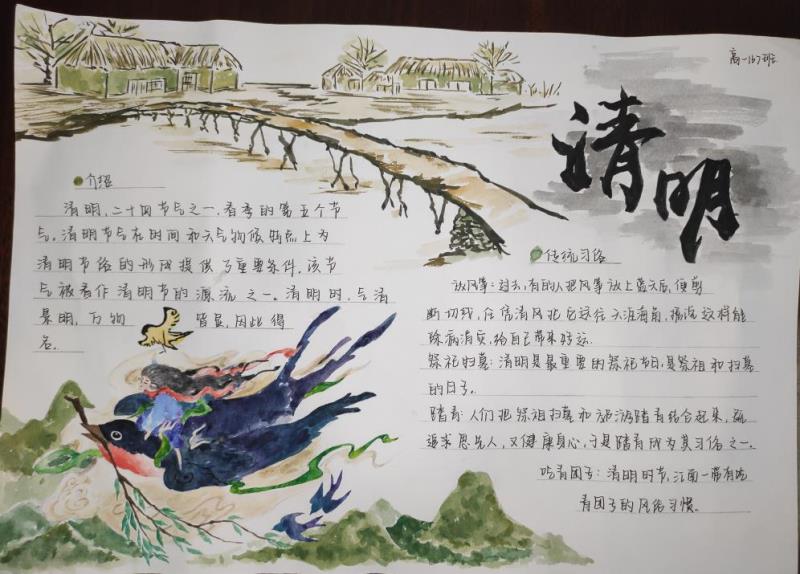 高一167班
清明
介绍
清明，二十四节气之一，春季的第五个节
气。清明节气在时间和天气物候特点上为
清明节俗的形成提供了重要条件，该节
气被看作清明节的源流之一。清明时，气清
景明，万物 皆显，因此得
名。
传统习俗
放风筝：过去，有的人把风筝放上蓝天后，便剪
断切线，任清风把它送往天涯海角，据说这样能
除病消灾，给自己带来好运。
祭祀扫墓：清明是最重要的祭祀节日，是祭祖和扫墓
的日子。
踏青：人们把祭祖扫墓和旅游踏青结合起来，
追求思先人，又健康身心，于是踏青成为其习俗之一。
吃青团子：清明时节，江南一带有吃
青团子的风俗习惯。